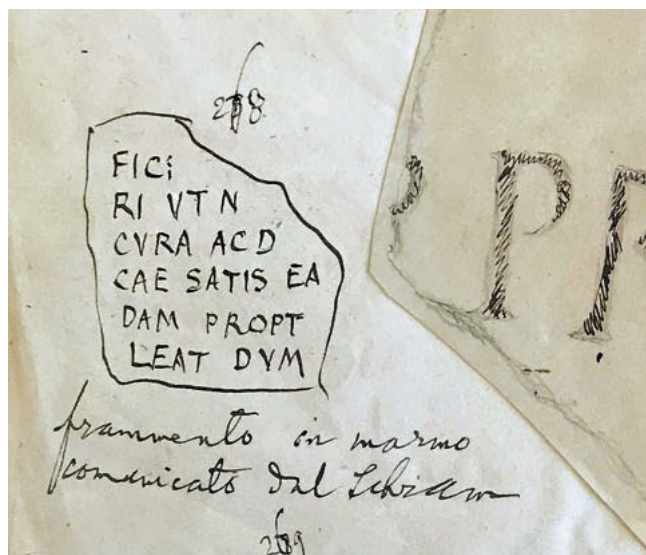 218
FICI
RI VT N
CVRA AC D
CAE SATIS EA
DAM PROPT
LEAT DVM
frammento in marmo
comunicato dal
PP